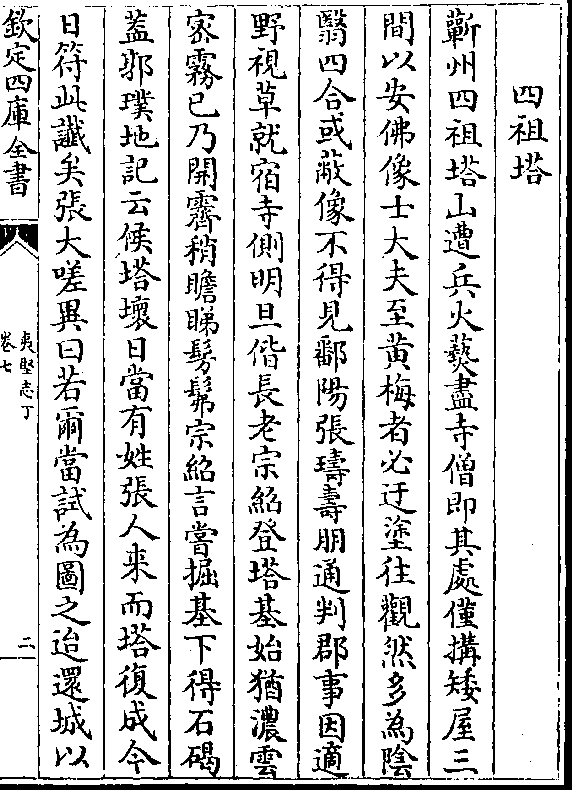 四祖塔
蘄州四祖塔山遭兵火爇盡寺僧即其處僅搆矮屋三
間以安佛像士大夫至黄梅者必迂塗往觀然多為陰
翳四合或蔽像不得見鄱陽張璹壽朋通判郡事因適
野視草就宿寺側明旦偕長老宗紹登塔基始猶濃雲
宻霧已乃開霽稍瞻睇髣髴宗紹言嘗掘基下得石碣
蓋郭璞地記云候塔壞日當有姓張人来而塔復成今
日符此讖矣張大嗟異曰若爾當試為圖之迨還城以
欽定四庫全書
夷堅志丁
卷七
二